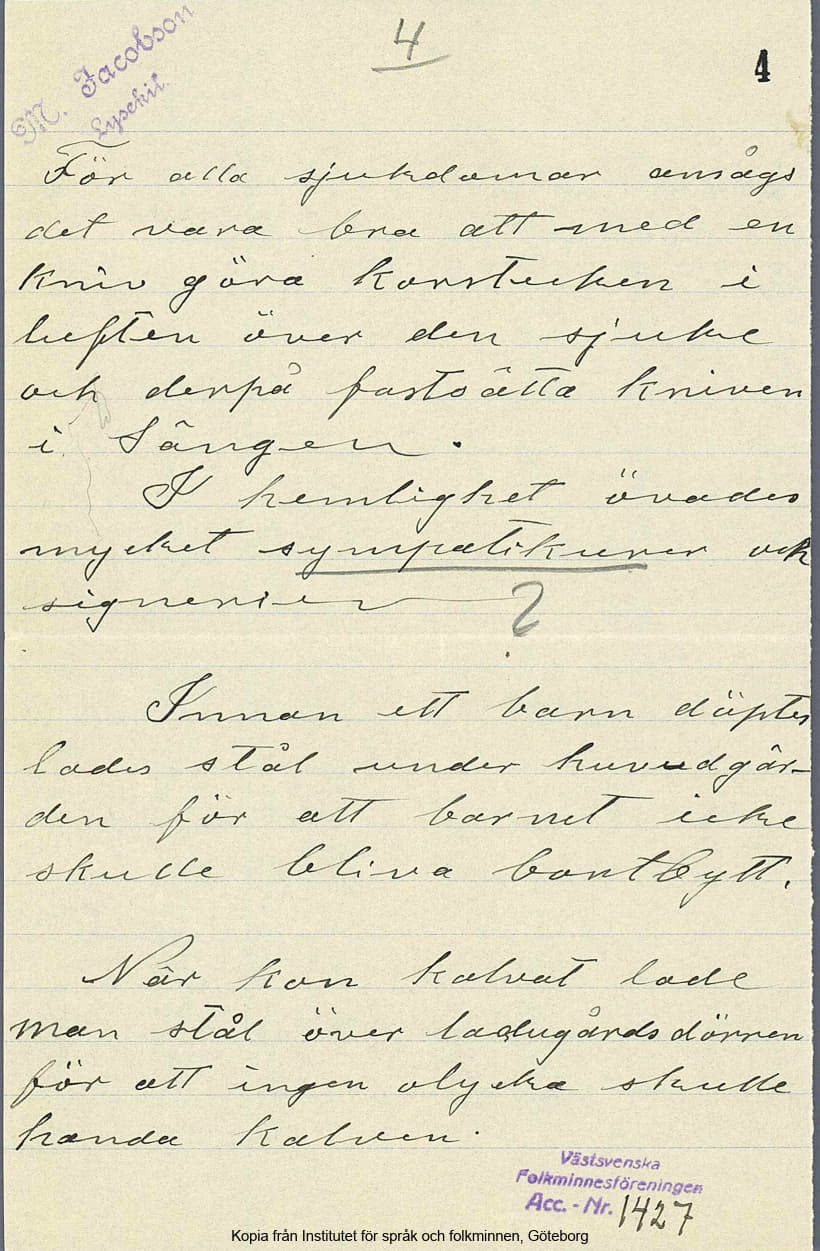 4
4
M. Jacobson
Lysekil.
För alla sjukdomar ansågs
det vara bra att med en
kniv göra korstecken i
luften över den sjuke
och derpå fastsätta kniven
i Sängen.
I hemlighet övades
mycket sympatikurer och
signerier
?
Innan ett barn döptes
lades stål under huvudgär-
den för att barnet icke
skulle bliva bortbytt.
När kon kalvat lade
man stål över ladugårdsdörren
för att ingen olycka skulle
handa kalven.
Västsvenska
Folkminnesföreningen
Acc. - Nr. 1427
Kopia från Institutet för språk och folkminnen, Göteborg